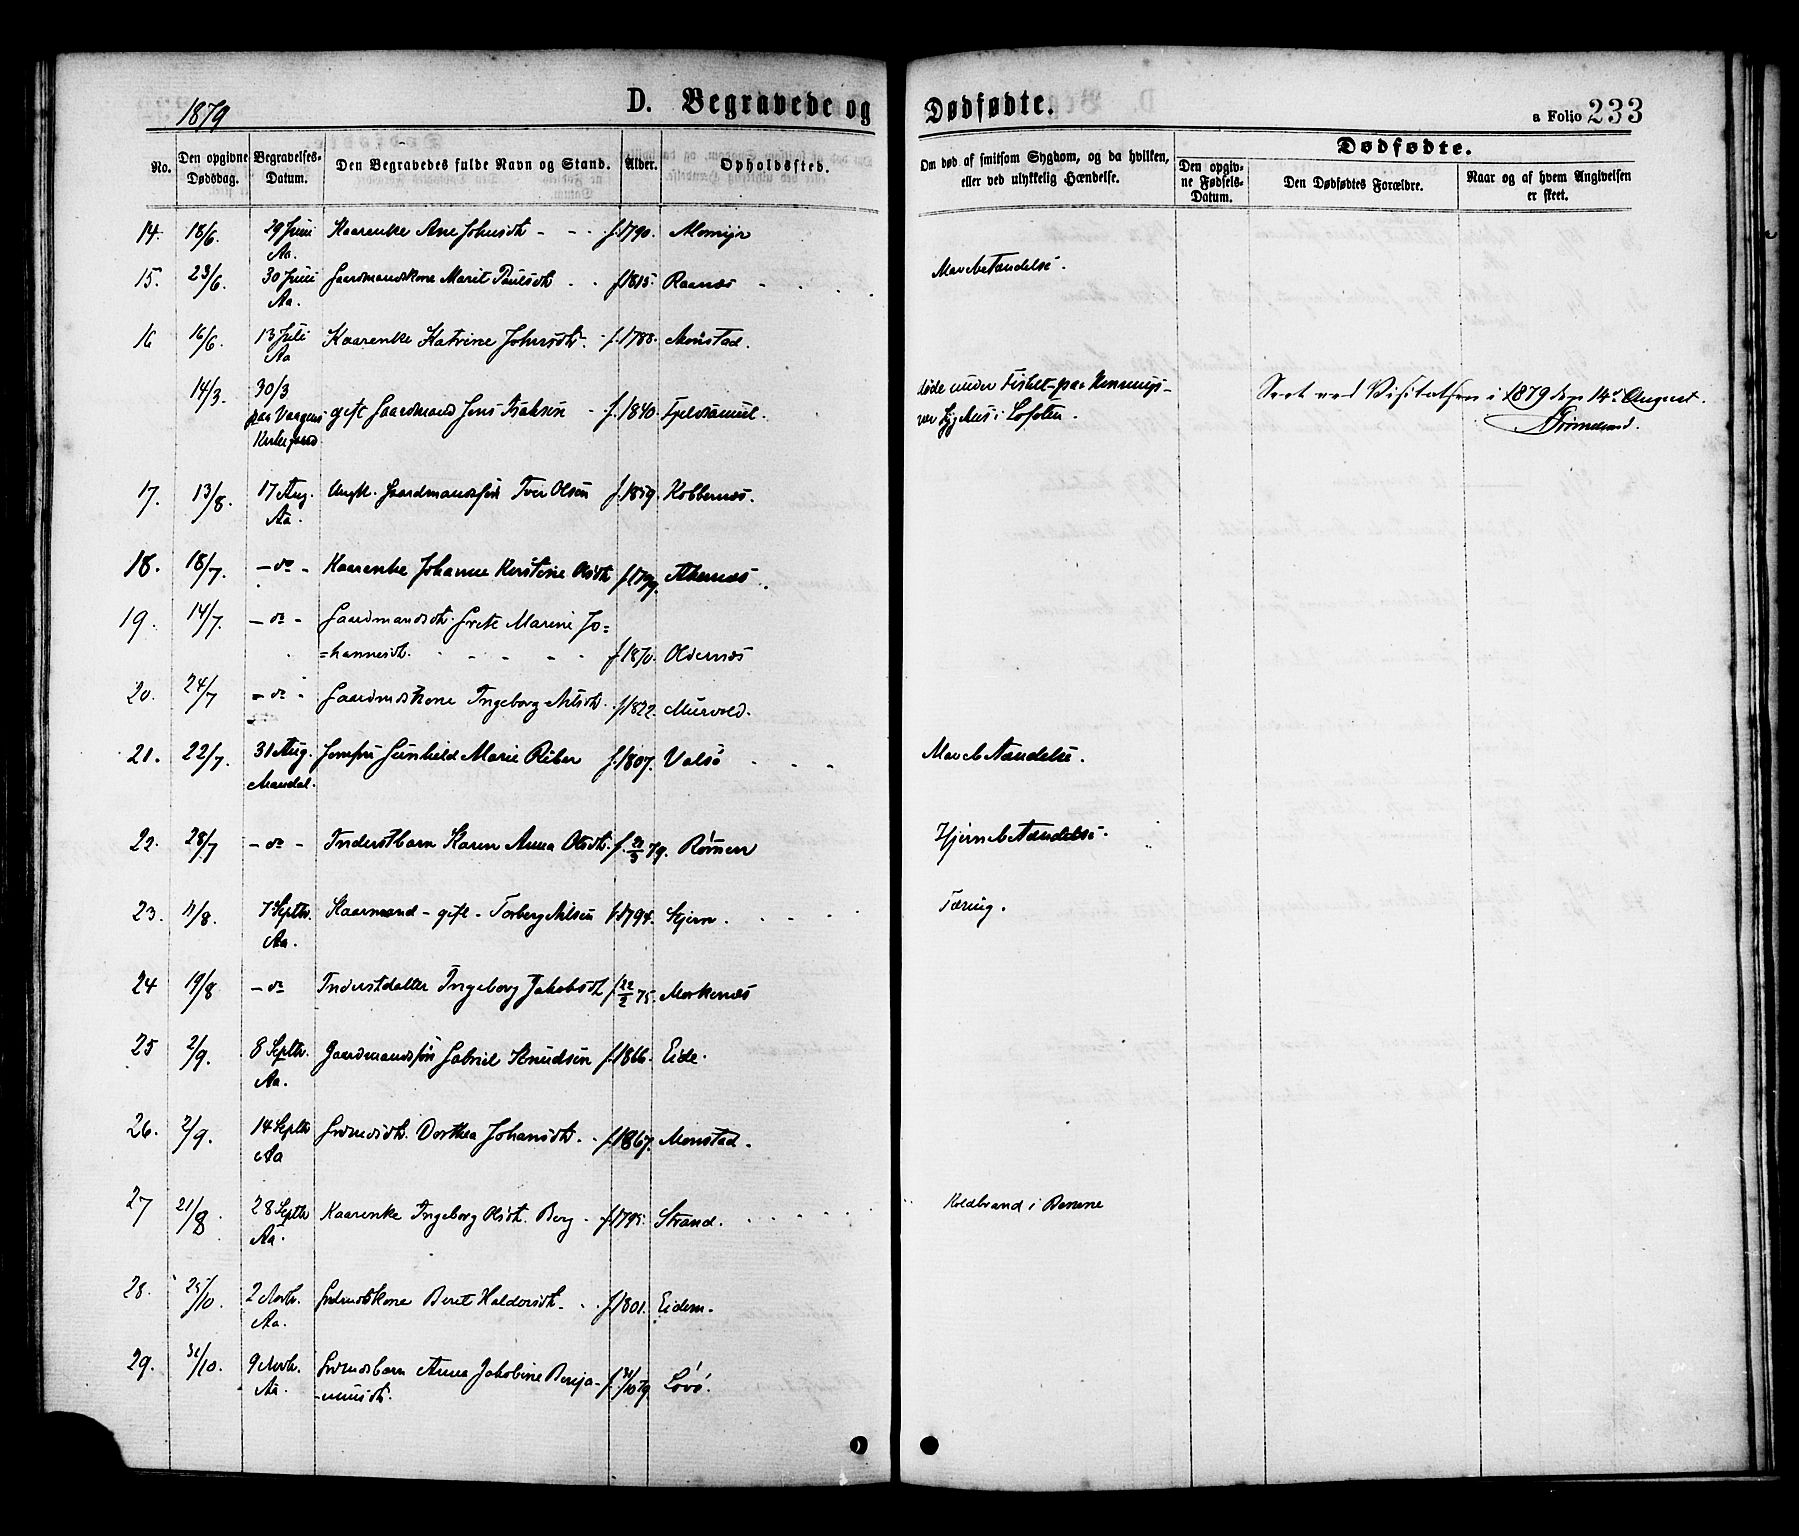 1879
D. Begravede og Dødfødte.
a Folio 233
No. Den opgivne Dødsdag. Begravelses-Datum. Den Begravedes fulde Navn og Stand. Alder. Opholdssted. Om død af smitsom Sygdom, og da hvilken, eller ved ulykkelig Hændelse.
Dødfødte.
Den opgivne Fødsels-Datum. Den Dødfødtes Forældre. Naar og af hvem Angivelsen er skeet.
14. 18/6. 29 Juni Kaarenke Ane Johnsdt - - - f.1790. Momyr
Aa.
15. 23/6. 30 Juni Gaardmandskone Marit Paulsdt - - f.1815. Raanæs - Mavebetændelse.
Aa.
16 16/6. 13 Juli Kaarenke Katrine Johnsdt. - f.1788. Monstad.
Aa
14/3. 30/3 døde under Fiskeri paa
paa Vaagens gift Gaardmand Jens Isaksen - f.1840. Sygehus i Lofoten.
Kirkegaard
Seet ved Visitatsen i 1879 den 14de August.
17. 13/8. 17 Aug. Ungk. Gaardmandssøn Iver Olsen f.1859. Kobbernæs.
Aa.
18. 18/7. - do - Kaarenke Johanna Kerstine Olsdt Akernæs.
19. 14/7. - do - Gaardmandsdt. Grete Marine Jo=
=hannesdt. - - - - f.1870. Oldernæs
20. 24/7 - do - Gaardmdskone Ingeborg Nilsdt. f.1822. Murvold.
21. 22/7. 31 Aug. Jomfru Gunhild Marie Riber f.1807. Valsø - - - Mavebetændelse.
Mandal.
22. 28/7 - do - Inderstbarn Karen Anna Olsdt. 79. Hjernebetændelse.
23. 11/8. 7 Septbr. Kaarmand - gift - Torberg Nilsen f.1794. Stjern. - - - Tæring.
Aa.
24 19/8 - do Inderstdatter Ingeborg Jakobsdt f 22/2 75. Morkenæs
25 2/9. 8 Septbr. Gaardmandssøn Gabriel Knudsen f.1866. Eide.
Aa.
26. 2/9. 14 Septbr Grdmdsdt. Dorthea Johansdt. - f.1867. Monstad.
Aa
27 21/8. 28 Septbr Kaarenke Ingeborg Olsdt. Berg - f.1795. Strand. - - - Koldbrand i Benene
Aa.
28. 25/10. 2 Novbr. Grdmdskone Beret Haldorsdt - - f.1801. Eidem.
Aa.
29. 31/10. 9 Novbr. Grdmdsbarn Anna Jakobine Benja- f. 31/10 79. Lovø.
Aa. -minsdt.